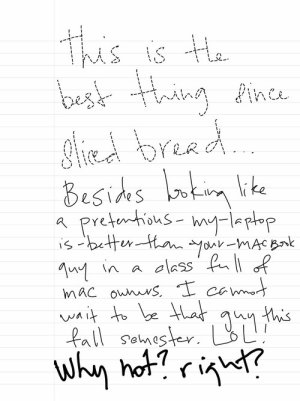 This is the
best thing since
sliced bread...
Besides looking like
a pretentious-my-laptop
is-better-than-your-MACBook
guy in a class full of
mac owners. I cannot
wait to be that guy this
fall semester. LOL!
Why not? right?